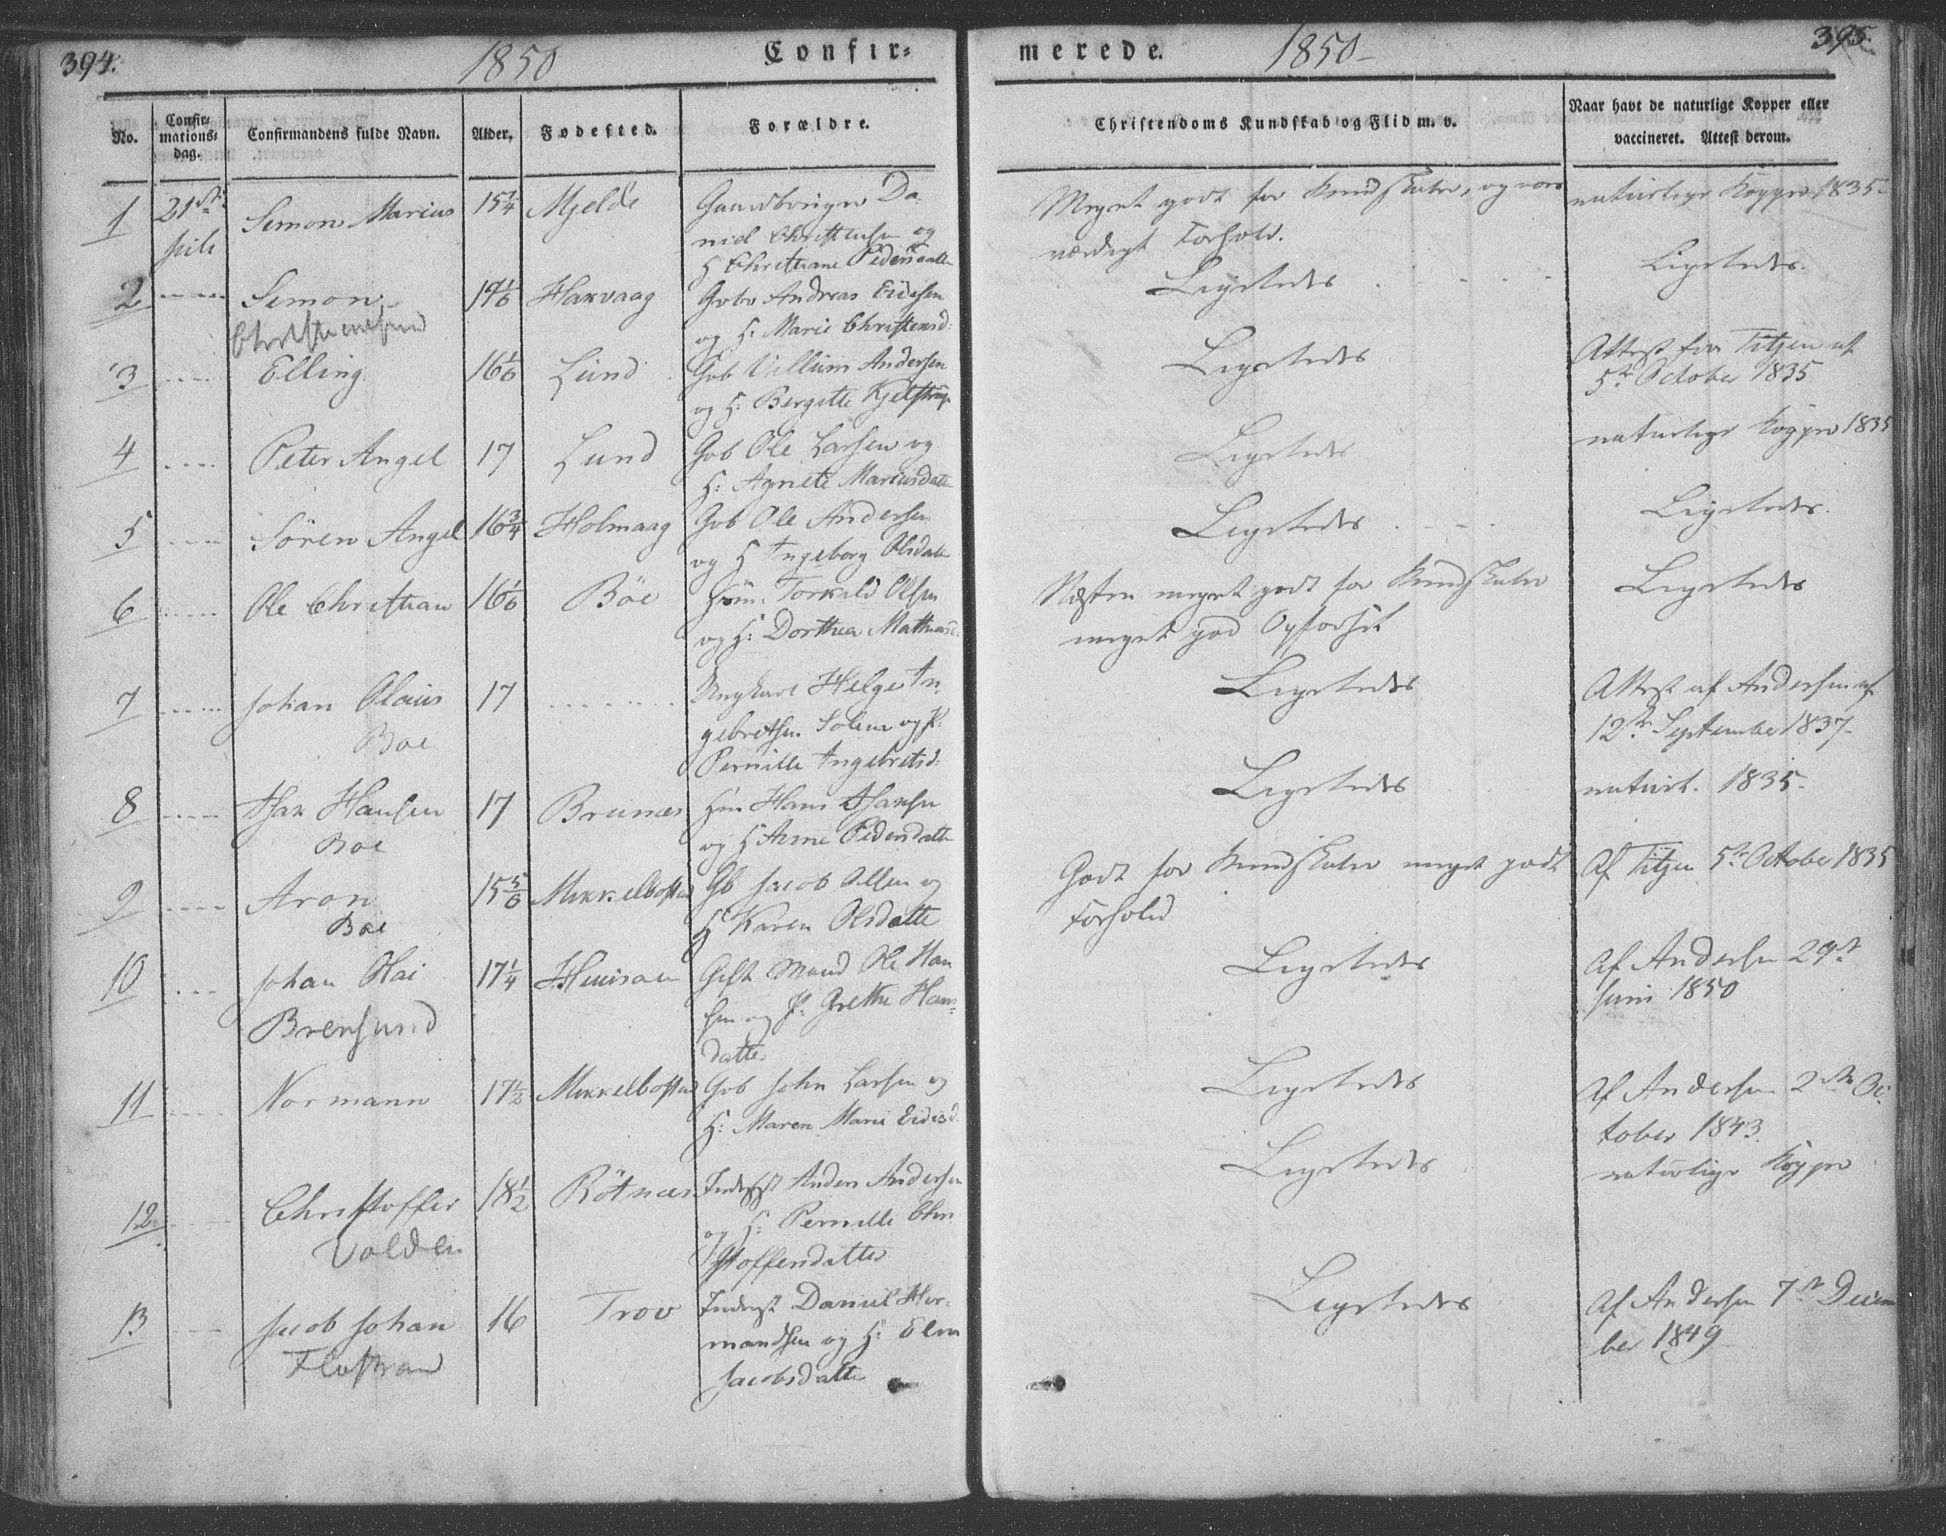 394.
1850
Confir-
merede.
1850
395.
No.
Confir-
mations-
dag.
Confirmandens fulde Navn.
Alder.
Fødested.
Forældre.
Christendoms Kundskab og Flid m. v.
Naar havt de naturlige Kopper eller
vaccineret. Attest derom.
1 21de Simon Marius 15 1/4 Mjelde Gaardbruger Da-
Juli niel Christensen og
H Christiane Pedersdatter
Meget godt for Kundskaber, og
værdigt Forhold.
naturlige Kopper 1835
2 Simon 19 1/6 Haxvaag Gbr Andreas Eidesen
Christensund og H. Marie Christensd:
Ligeledes
Ligeledes.
3 Elling 16 1/6 Lund Gbr Villum Andersen
og H: Bergitte Kjelstrup
Ligeledes
Attest fra Titjen af
5te October 1835
4 Peter Angel 17 Lund Gbr Ole Larsen og
H: Agnete Mariusdatter
Ligeledes
naturlige Kopper 1835
5 Sören Angel 16 3/4 Holmaag Gbr Ole Andersen
og H Ingeborg Olsdatter
Ligeledes
Ligeledes.
6 Ole Christian 16 1/6 Böe Torkild Olsen
og H: Dorthea Mathiasd.
Næsten meget godt for Kundskaber
meget god Opførsel
Ligeledes
7 Johan Olaus 17 Ungkarl Helge In-
Boe gebretsen Solem og P:
Pernille Ingebretsd:
Ligeledes
Attest af Andersen af
12te September 1837
8 Isak Hansen 17 Brunæs Hans Isaksen
Boe og H Anne Pedersdatter
Ligeledes
naturl. 1835
9 Aron 15 5/6 Mikkelbostad Gb Jacob Olsen og
Boe H Karen Olsdatter
Godt for Kundskaber meget godt
Forhold
Af Titjen 5te October 1835
10 Johan Olai 17 1/4 Gift Mand Ole Han
Brensund sen og P: Grethe Hans-
datter
Ligeledes
Af Andersen 29de
Juni 1850
11 Normann 17 1/2 Mikkelbostad Gbr John Larsen og
H: Maren Marie Eidisd.
Ligeledes
Af Andersen 2den Oc-
tober 1843.
12 Christoffer 18 1/2 Rötnæs Inderst Anders Andersen
Valden og H: Pernille Chri
stoffersdatter
Ligeledes
naturlige Kopper
13 Jacob Johan 16 Trov Inderst Daniel Her-
Flostrand mandsen og H: Elen
Jacobsdatter
Ligeledes
Af Andersen 7de Decem
ber 1849